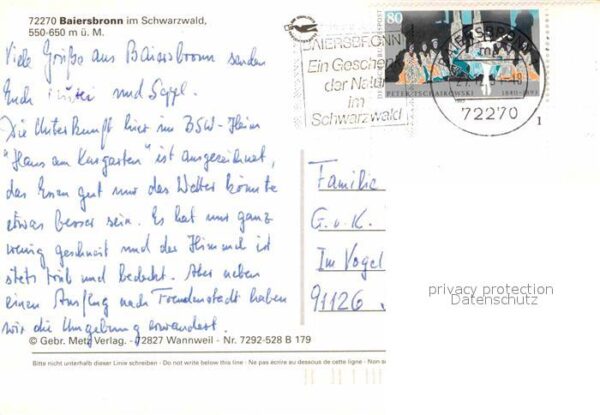 72270 Baiersbronn im Schwarzwald,
550-650 m ü. M.
Viele Grüße aus Baiersbronn senden
Euch und Seppl.
Die Unterkunft hier im BSW-Heim
"Haus am Kurgarten" ist ausgezeichnet,
das Essen gut nur das Wetter könnte
etwas besser sein. Es hat nur ganz
wenig geschneit und der Himmel ist
stets trüb und bedeckt. Aber neben
einen Ausflug nach Freudenstadt haben
wir die Umgebung erwandert.
© Gebr. Metz Verlag. - 72827 Wannweil - Nr. 7292-528 B 179
Bitte nicht unterhalb dieser Linie schreiben - Do not write below this line - Ne pas écrire au dessous de cette ligne - Non
BAIERSBRONN
Ein Geschenk
der Natur
im
Schwarzwald
80
PETER TSCHAIKOWSKI 1840-1893
72270
1
Familie
G. u. K.
Im Vogel
91126
privacy protection
Datenschutz